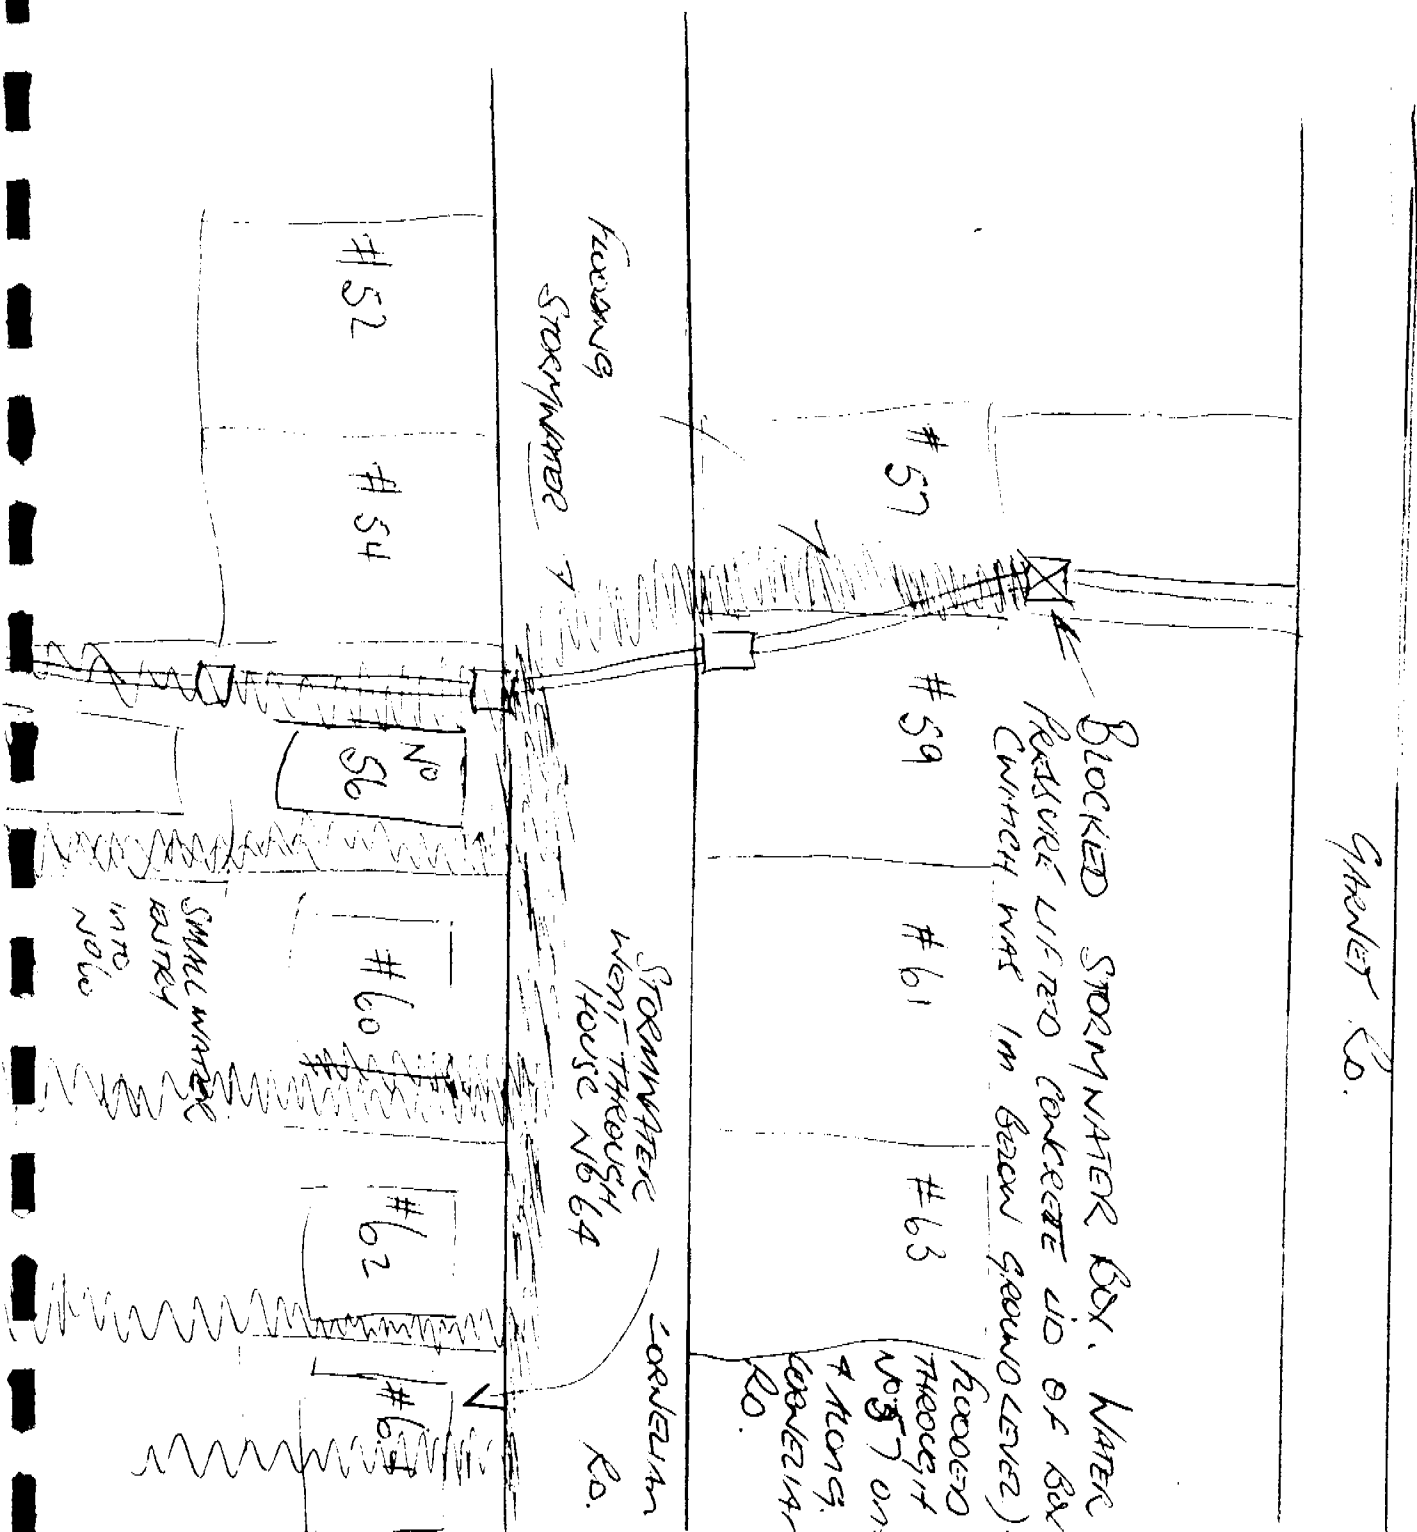 GARNET RD.
BLOCKED STORMWATER BOX. WATER
PRESSURE LIFTED CONCRETE LID OF BOX
(WHICH WAS 1M BELOW GROUND LEVEL)
#57
#59
#61
#63
FLOODED
THROUGH
No 57 ON
& ALONG
CORNELIAN
RD.
CORNELIAN RD.
FLOODING
STORMWATER
STORMWATER
WENT THROUGH
HOUSE No 64
#52
#54
No
56
#60
#62
#64
SMALL WATER
ENTRY
INTO
No 60